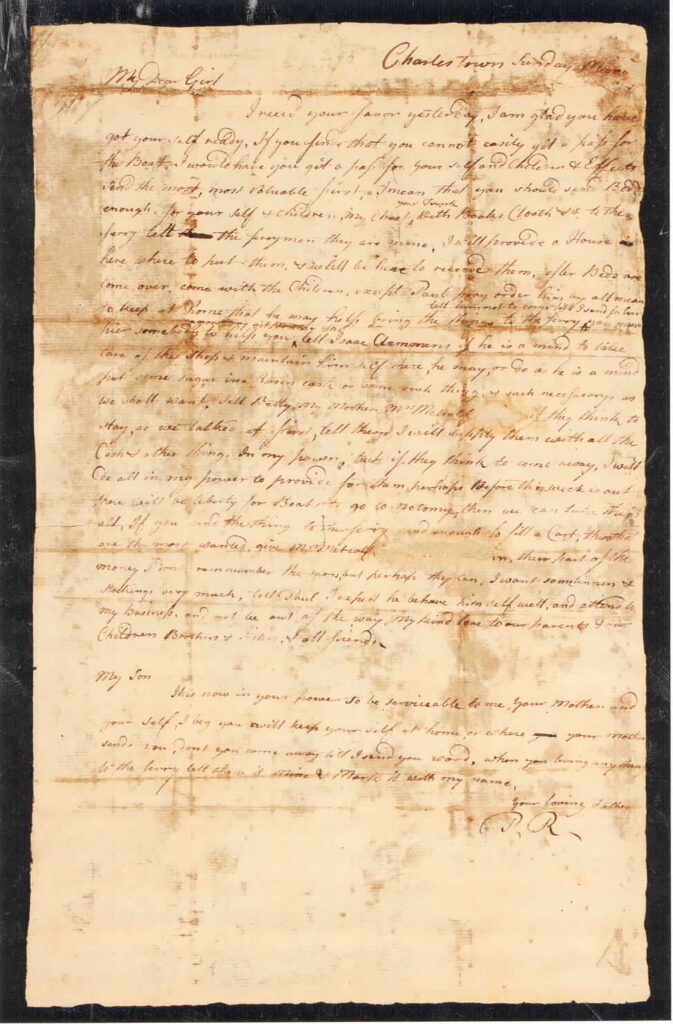 Charles Town Sunday
My Dear Girl
I recd your favor yesterday, I am glad you have
got yourself ready, If you find that you cannot easily get a pass for
the Boat, I would have you get a pass for your self and Children & Effects
Send the most, most valuable first, I mean that you should send Beds
enough for your self & Children, my Chest, your Trunk
with Books Cloath &c, to the
ferry tell the ferrymen they are mine, I will provide a House
here where to put them, & will be here to receive them, after Beds are
come over, come with the Children, except Paul pray order him by all means
to keep at home that he may help bring the things to the ferry
you must
hire somebody to help you, tell Isaac Clemmens if he is a mind to take
care of the Shop & maintain him self there, he may, or do as he is a mind
put some sugar in a Raisin cask or some such thing & such necessarys as
we shall want, tell Betty, My Mother, Mrs Metcalf if they think to
stay, as we talked at first, tell them I will supply them with all the
Cash & other things In my power, but if they think to come away, I will
Do all in my power to provide for them, perhaps Before this week is out
there will be liberty for Boats to go to Notomy, then we can take them
all, If you send the things to the ferry send enough to fill a Cart, them that
are the most wanted, give Mrs Metcalf in, their part of the
money I dont remember the sums, but perhaps they can, I want some linnen &
stockings very much, tell Paul I expect he behave him self well, and attend to
my Business, and not be out of the way, My kind love to our parents & our
Children Brothers & Sisters, & all friends
My Son
Its now in your power to be serviceable to me, your Mother and
your self, I beg you will keep your self at home or where your mother
sends you dont you come away till I send you word, when you bring any thing
to the ferry tell them its mine & Mark it with my name,
Your loving Father
P. R